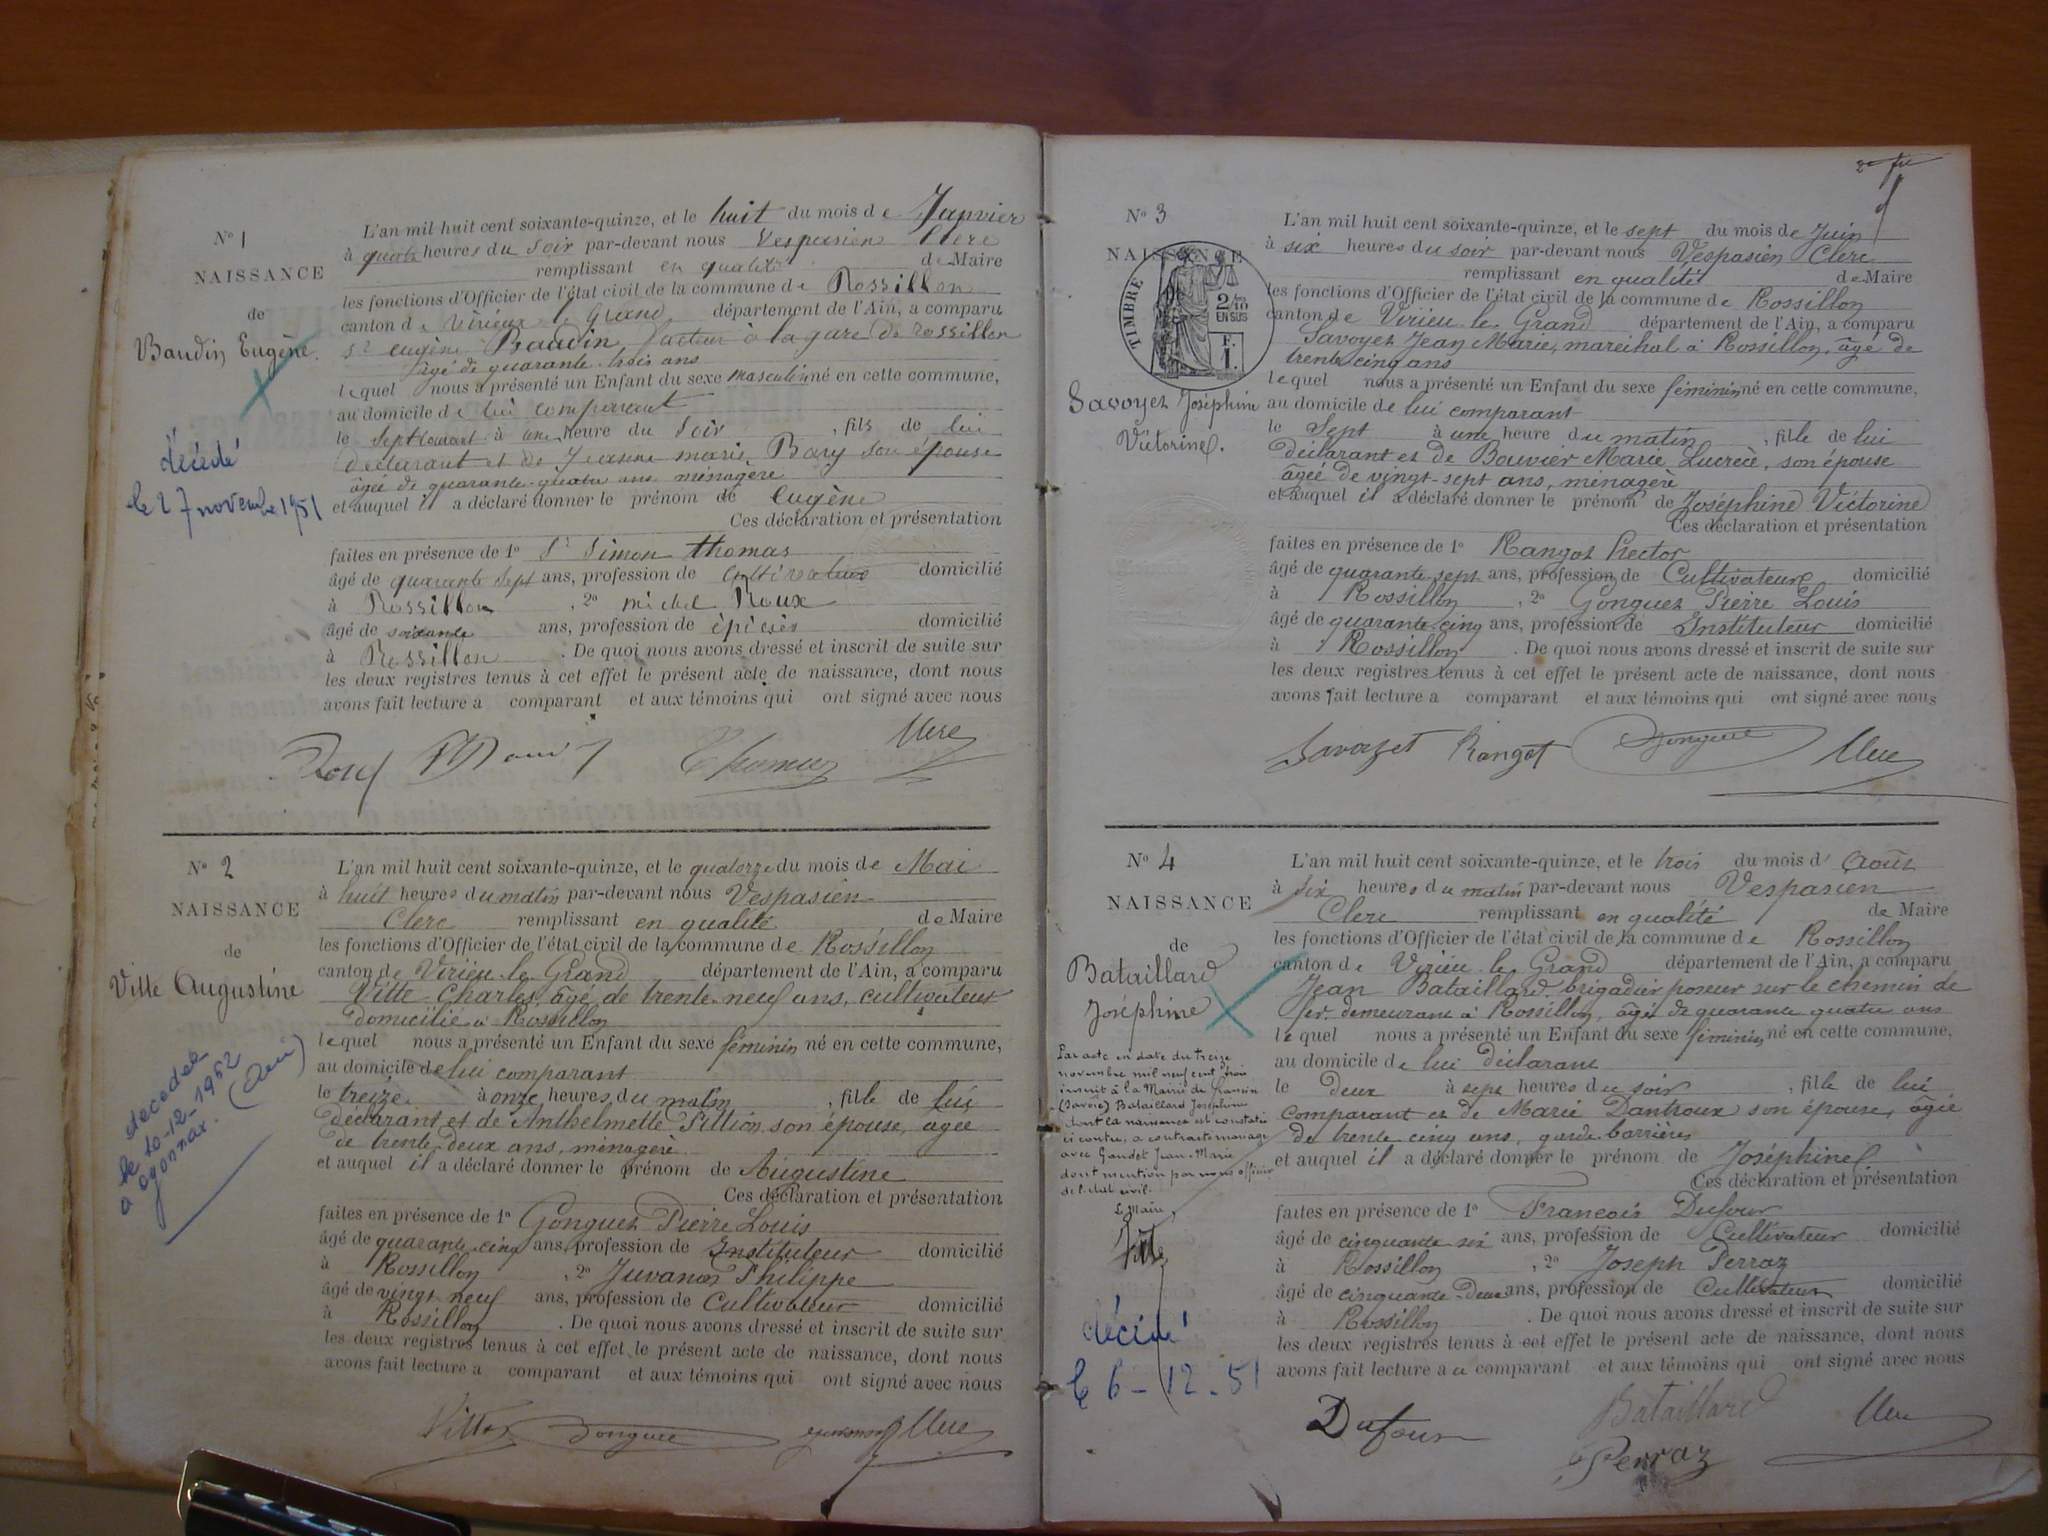 N° 1
NAISSANCE
de
Baudin Eugène.
décédé
le 27 novembre 1951
L'an mil huit cent soixante-quinze, et le huit du mois de Janvier
à quatre heures du Soir par-devant nous Vespasien Clerc
remplissant en qualité de Maire
les fonctions d'Officier de l'état civil de la commune de Rossillon
canton de Virieux le Grand département de l'Ain, a comparu
Sr eugène Baudin facteur à la gare de rossillon
âgé de quarante-trois ans
lequel nous a présenté un Enfant du sexe masculin né en cette commune,
au domicile de lui comparant
le Sept courant à une heure du Soir, fils de lui
déclarant et de Jeanne marie Bary son épouse
âgée de quarante-quatre ans ménagère
et auquel il a déclaré donner le prénom de Eugène
Ces déclaration et présentation
faites en présence de 1° Sr Simon thomas
âgé de quarante sept ans, profession de cultivateur domicilié
à Rossillon, 2° michel Roux
âgé de soixante ans, profession de épicier domicilié
à Rossillon. De quoi nous avons dressé et inscrit de suite sur
les deux registres tenus à cet effet le présent acte de naissance, dont nous
avons fait lecture a comparant et aux témoins qui ont signé avec nous
Thomas Clerc
N° 2
NAISSANCE
de
Vitte Augustine
decedee
le 10-12-1952
a oyonnax. (Ain)
L'an mil huit cent soixante-quinze, et le quatorze du mois de Mai
à huit heures du matin par-devant nous Vespasien
Clerc remplissant en qualité de Maire
les fonctions d'Officier de l'état civil de la commune de Rossillon
canton de Virieu-le-Grand département de l'Ain, a comparu
Vitte Charles, âgé de trente-neuf ans, cultivateur
domicilié à Rossillon
lequel nous a présenté un Enfant du sexe féminin né en cette commune,
au domicile de lui comparant
le treize à onze heures du matin, fille de lui
déclarant et de Anthelmette Pillion son épouse, agée
de trente-deux ans, ménagère
et auquel il a déclaré donner le prénom de Augustine
Ces déclaration et présentation
faites en présence de 1° Gonguet Pierre Louis
âgé de quarante-cinq ans, profession de Instituteur domicilié
à Rossillon, 2° Juvanon Philippe
âgé de vingt neuf ans, profession de Cultivateur domicilié
à Rossillon. De quoi nous avons dressé et inscrit de suite sur
les deux registres tenus à cet effet le présent acte de naissance, dont nous
avons fait lecture a comparant et aux témoins qui ont signé avec nous
Vitte Gonguet Juvanon Clerc
N° 3
NAISSANCE
TIMBRE
2/10
EN SUS
F.
1.
Savoyet Joséphine
Victorine.
L'an mil huit cent soixante-quinze, et le sept du mois de Juin
à six heures du soir par-devant nous Vespasien Clerc
remplissant en qualité de Maire
les fonctions d'Officier de l'état civil de la commune de Rossillon
canton de Virieu-le-Grand département de l'Ain, a comparu
Savoyet Jean Marie, maréchal à Rossillon, âgé de
trente cinq ans
lequel nous a présenté un Enfant du sexe féminin né en cette commune,
au domicile de lui comparant
le Sept à une heure du matin, fille de lui
déclarant et de Bouvier Marie Lucrèce, son épouse
âgée de vingt-sept ans, ménagère
et auquel il a déclaré donner le prénom de Joséphine Victorine
Ces déclaration et présentation
faites en présence de 1° Rangot Hector
âgé de quarante sept ans, profession de Cultivateur domicilié
à Rossillon, 2° Gonguet Pierre Louis
âgé de quarante cinq ans, profession de Instituteur domicilié
à Rossillon. De quoi nous avons dressé et inscrit de suite sur
les deux registres tenus à cet effet le présent acte de naissance, dont nous
avons fait lecture a comparant et aux témoins qui ont signé avec nous
Savoyet Rangot Gonguet Clerc
N° 4
NAISSANCE
de
Bataillard
Joséphine
Par acte en date du treize
novembre mil neuf cent trois
inscrit à la Mairie de
(Savoie) Bataillard Joséphine
dont la naissance est constatée
ci contre, a contracté mariage
avec Gandet Jean-Marie
dont mention par nous officier
de l'état civil.
Le Maire,
Vitte
décédé
le 6-12-51
L'an mil huit cent soixante-quinze, et le trois du mois d'Août
à six heures du matin par-devant nous Vespasien
Clerc remplissant en qualité de Maire
les fonctions d'Officier de l'état civil de la commune de Rossillon
canton de Virieu-le-Grand département de l'Ain, a comparu
Jean Bataillard brigadier poseur sur le chemin de
fer demeurant à Rossillon, âgé de quarante quatre ans
lequel nous a présenté un Enfant du sexe féminin né en cette commune,
au domicile de lui déclarant
le deux à sept heures du soir, fille de lui
comparant et de Marie Dantroux son épouse, âgée
de trente cinq ans, garde barrières
et auquel il a déclaré donner le prénom de Joséphine
Ces déclaration et présentation
faites en présence de 1° Francois Dufour
âgé de cinquante six ans, profession de Cultivateur domicilié
à Rossillon, 2° Joseph Perraz
âgé de cinquante-deux ans, profession de Cultivateur domicilié
à Rossillon. De quoi nous avons dressé et inscrit de suite sur
les deux registres tenus à cet effet le présent acte de naissance, dont nous
avons fait lecture au comparant et aux témoins qui ont signé avec nous
Dufour Bataillard Clerc
Perraz